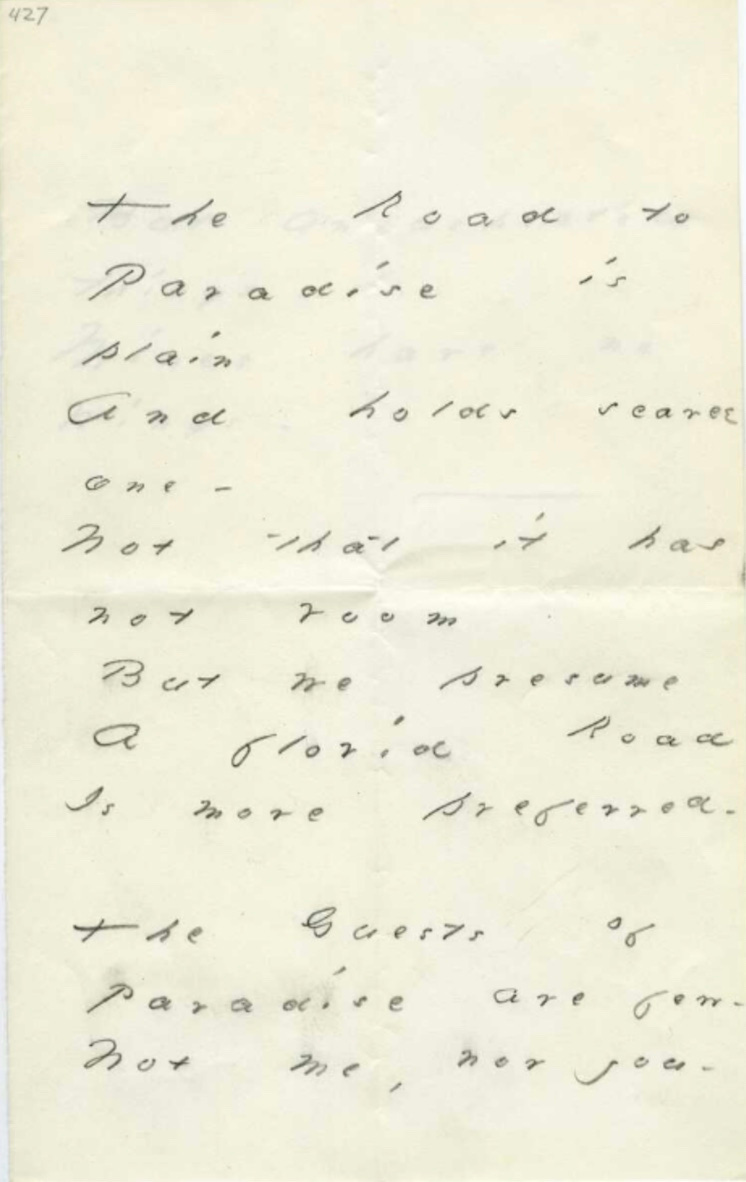 427
The Road to
Paradise is
plain
And holds scarce
one -
Not that it has
not room
But we presume
A florid Road
Is more preferred -
The Guests of
Paradise are few -
Not me, nor you -